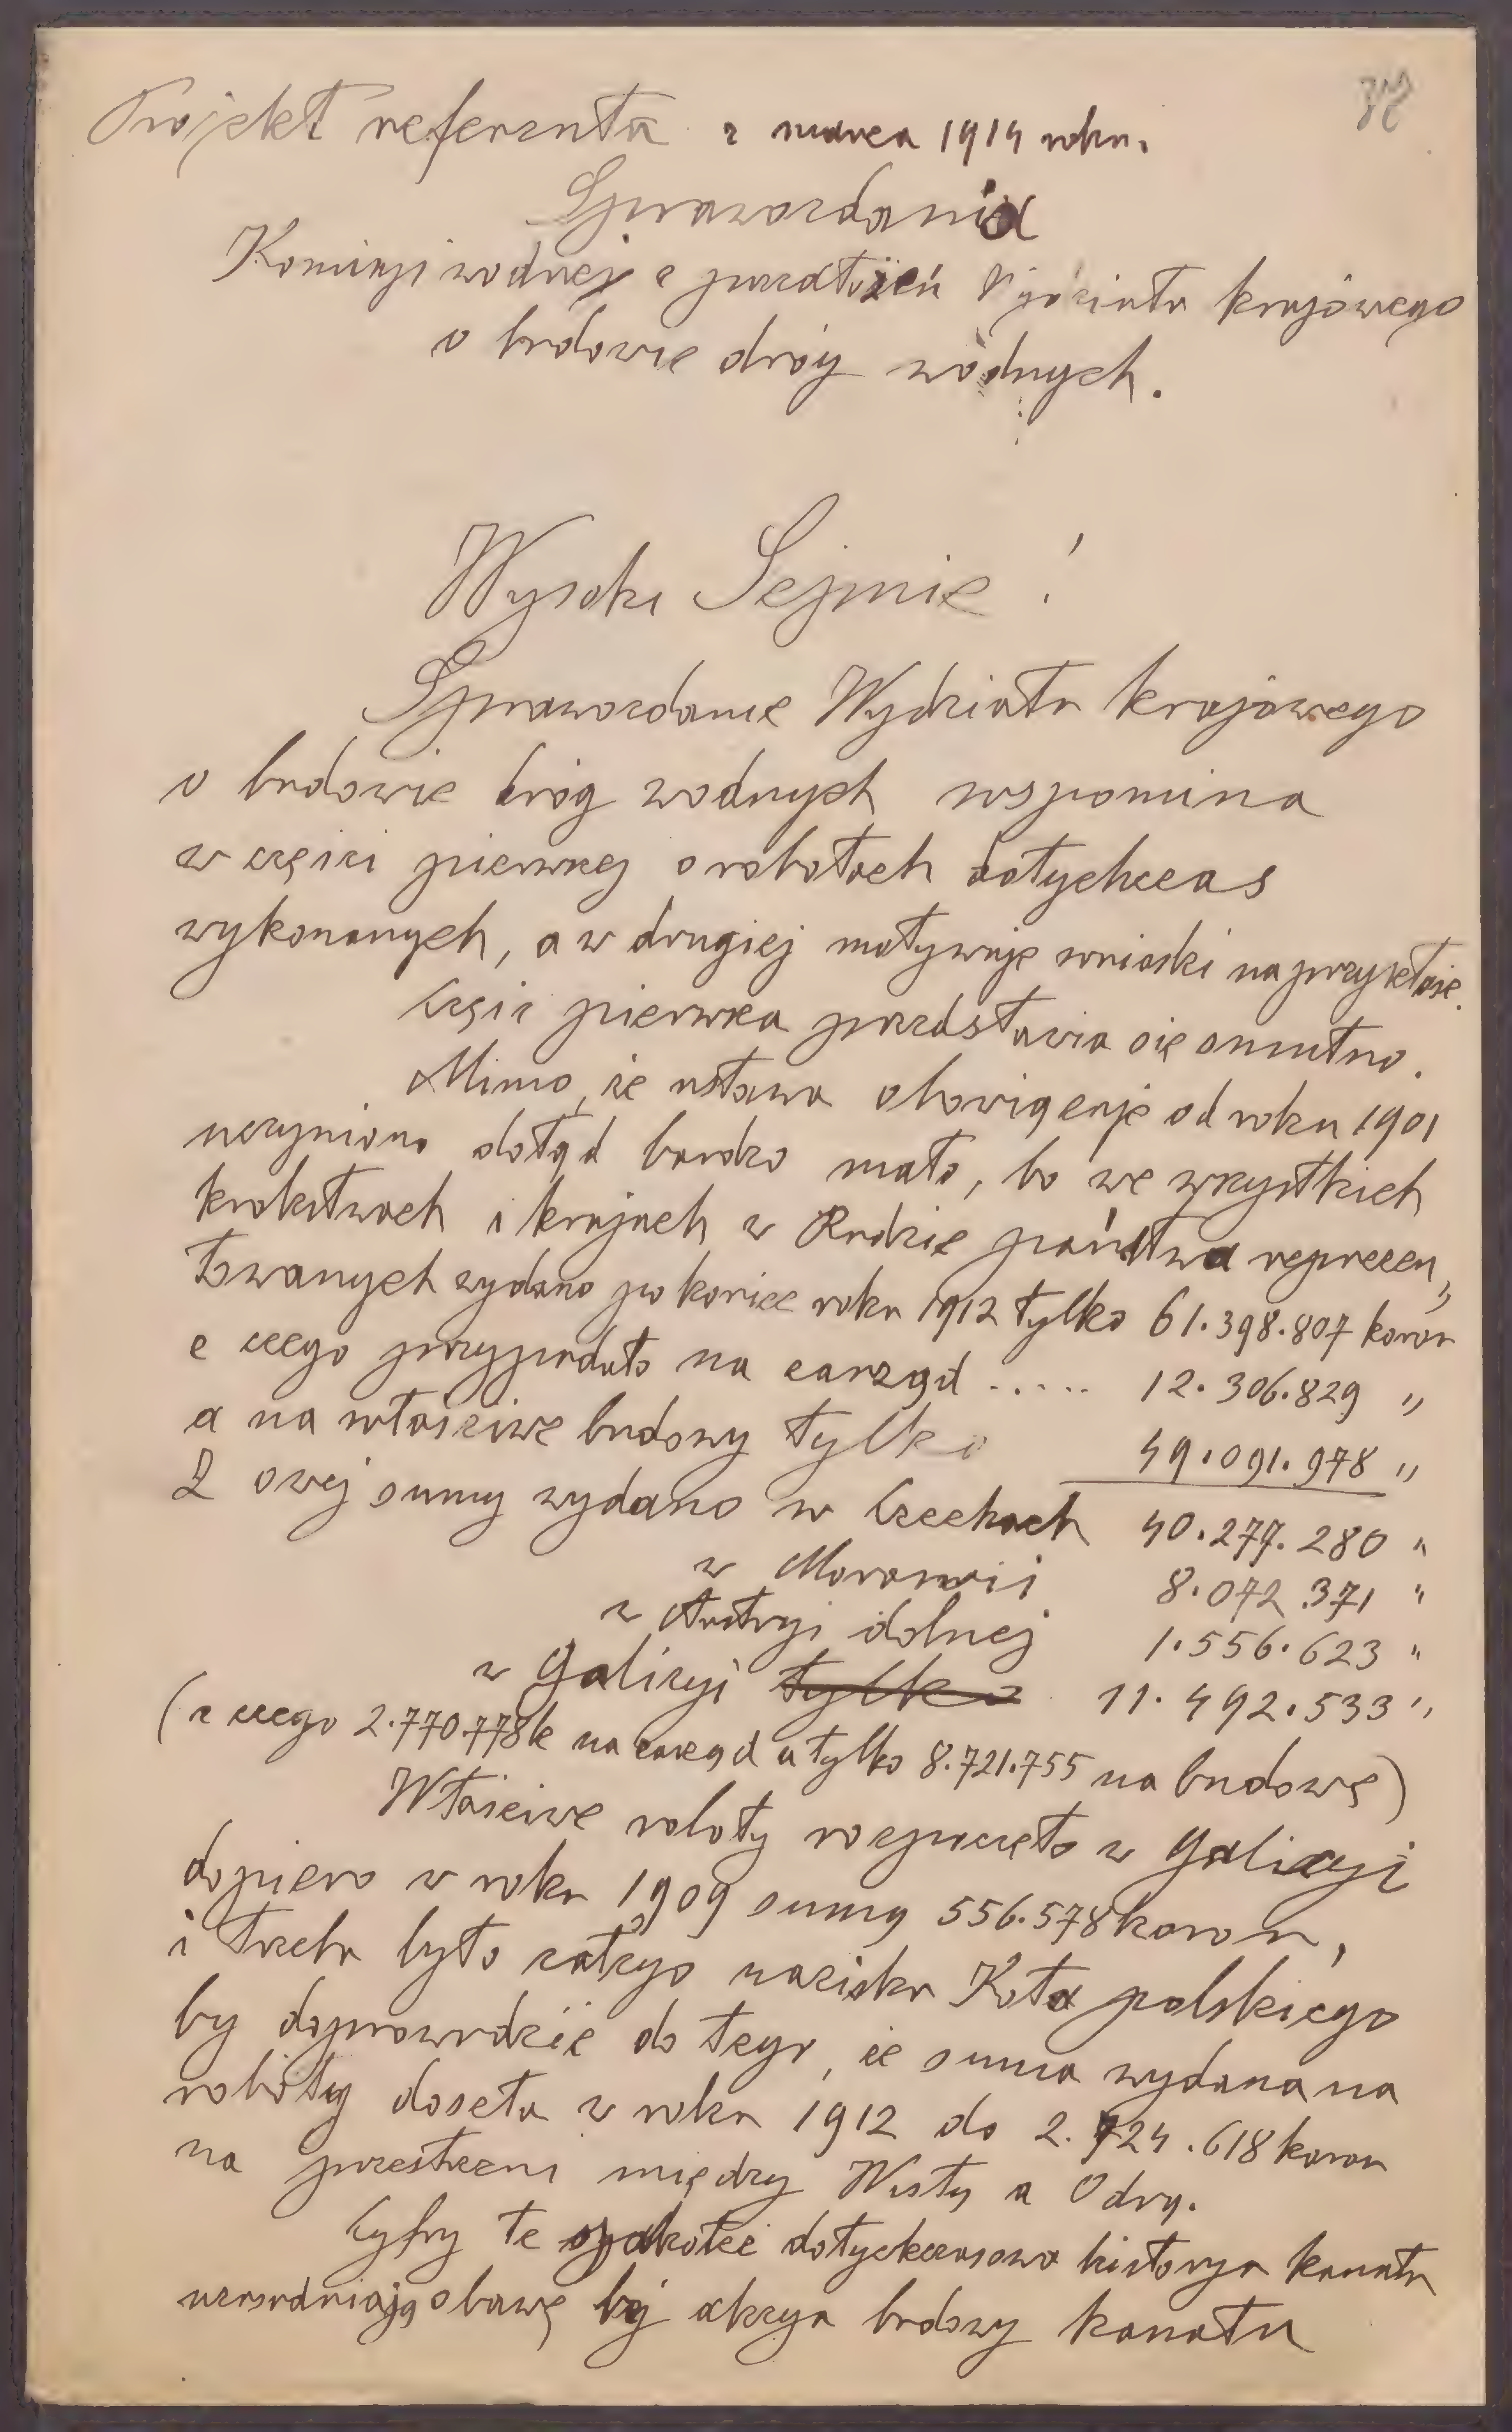 Projekt referenta z marca 1914 roku.
Sprawozdania
Komisyi wodnej z przedłożeń Wydziału krajowego
o budowie dróg wodnych.
Wysoki Sejmie!
Sprawozdanie Wydziału krajowego
o budowie dróg wodnych wspomina
w części pierwszej o robotach dotychczas
wykonanych, a w drugiej motywuje wnioski na przyszłość.
Część pierwsza przedstawia się smutno.
Mimo, że ustawa obowiązuje od roku 1901
uczyniono dotąd bardzo mało, bo we wszystkich
królestwach i krajach w Radzie państwa reprezen„
towanych wydano po koniec roku 1912 tylko 61.398.807 koron
z czego przypadało na zarząd ..... 12.306.829 „
a na właściwe budowy tylko 49.091.978 „
Z owej sumy wydano w Czechach 40.277.280 „
w Morawii 8.072.371 „
w Austryi dolnej 1.556.623 „
w Galicyi tylko 11.492.533 „
(z czego 2.770.778 k na zarząd a tylko 8.721.755 na budowę)
Właściwe roboty rozpoczęto w Galicyi
dopiero w roku 1909 sumą 556.578 koron,
i trzeba było całego nacisku Koła polskiego
by doprowadzić do tego, że suma wydana na
roboty doszła w roku 1912 do 2.724.618 koron
na przestrzeni między Wisłą a Odrą.
Cyfry te i dotychczasowa historya kanału
uzasadniają obawę by akcya budowy kanału